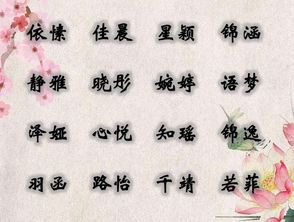 依愫 佳晨 星颖 锦涵
静雅 晓彤 婉婷 语梦
泽娅 心悦 知瑶 锦逸
羽函 路怡 千靖 若菲